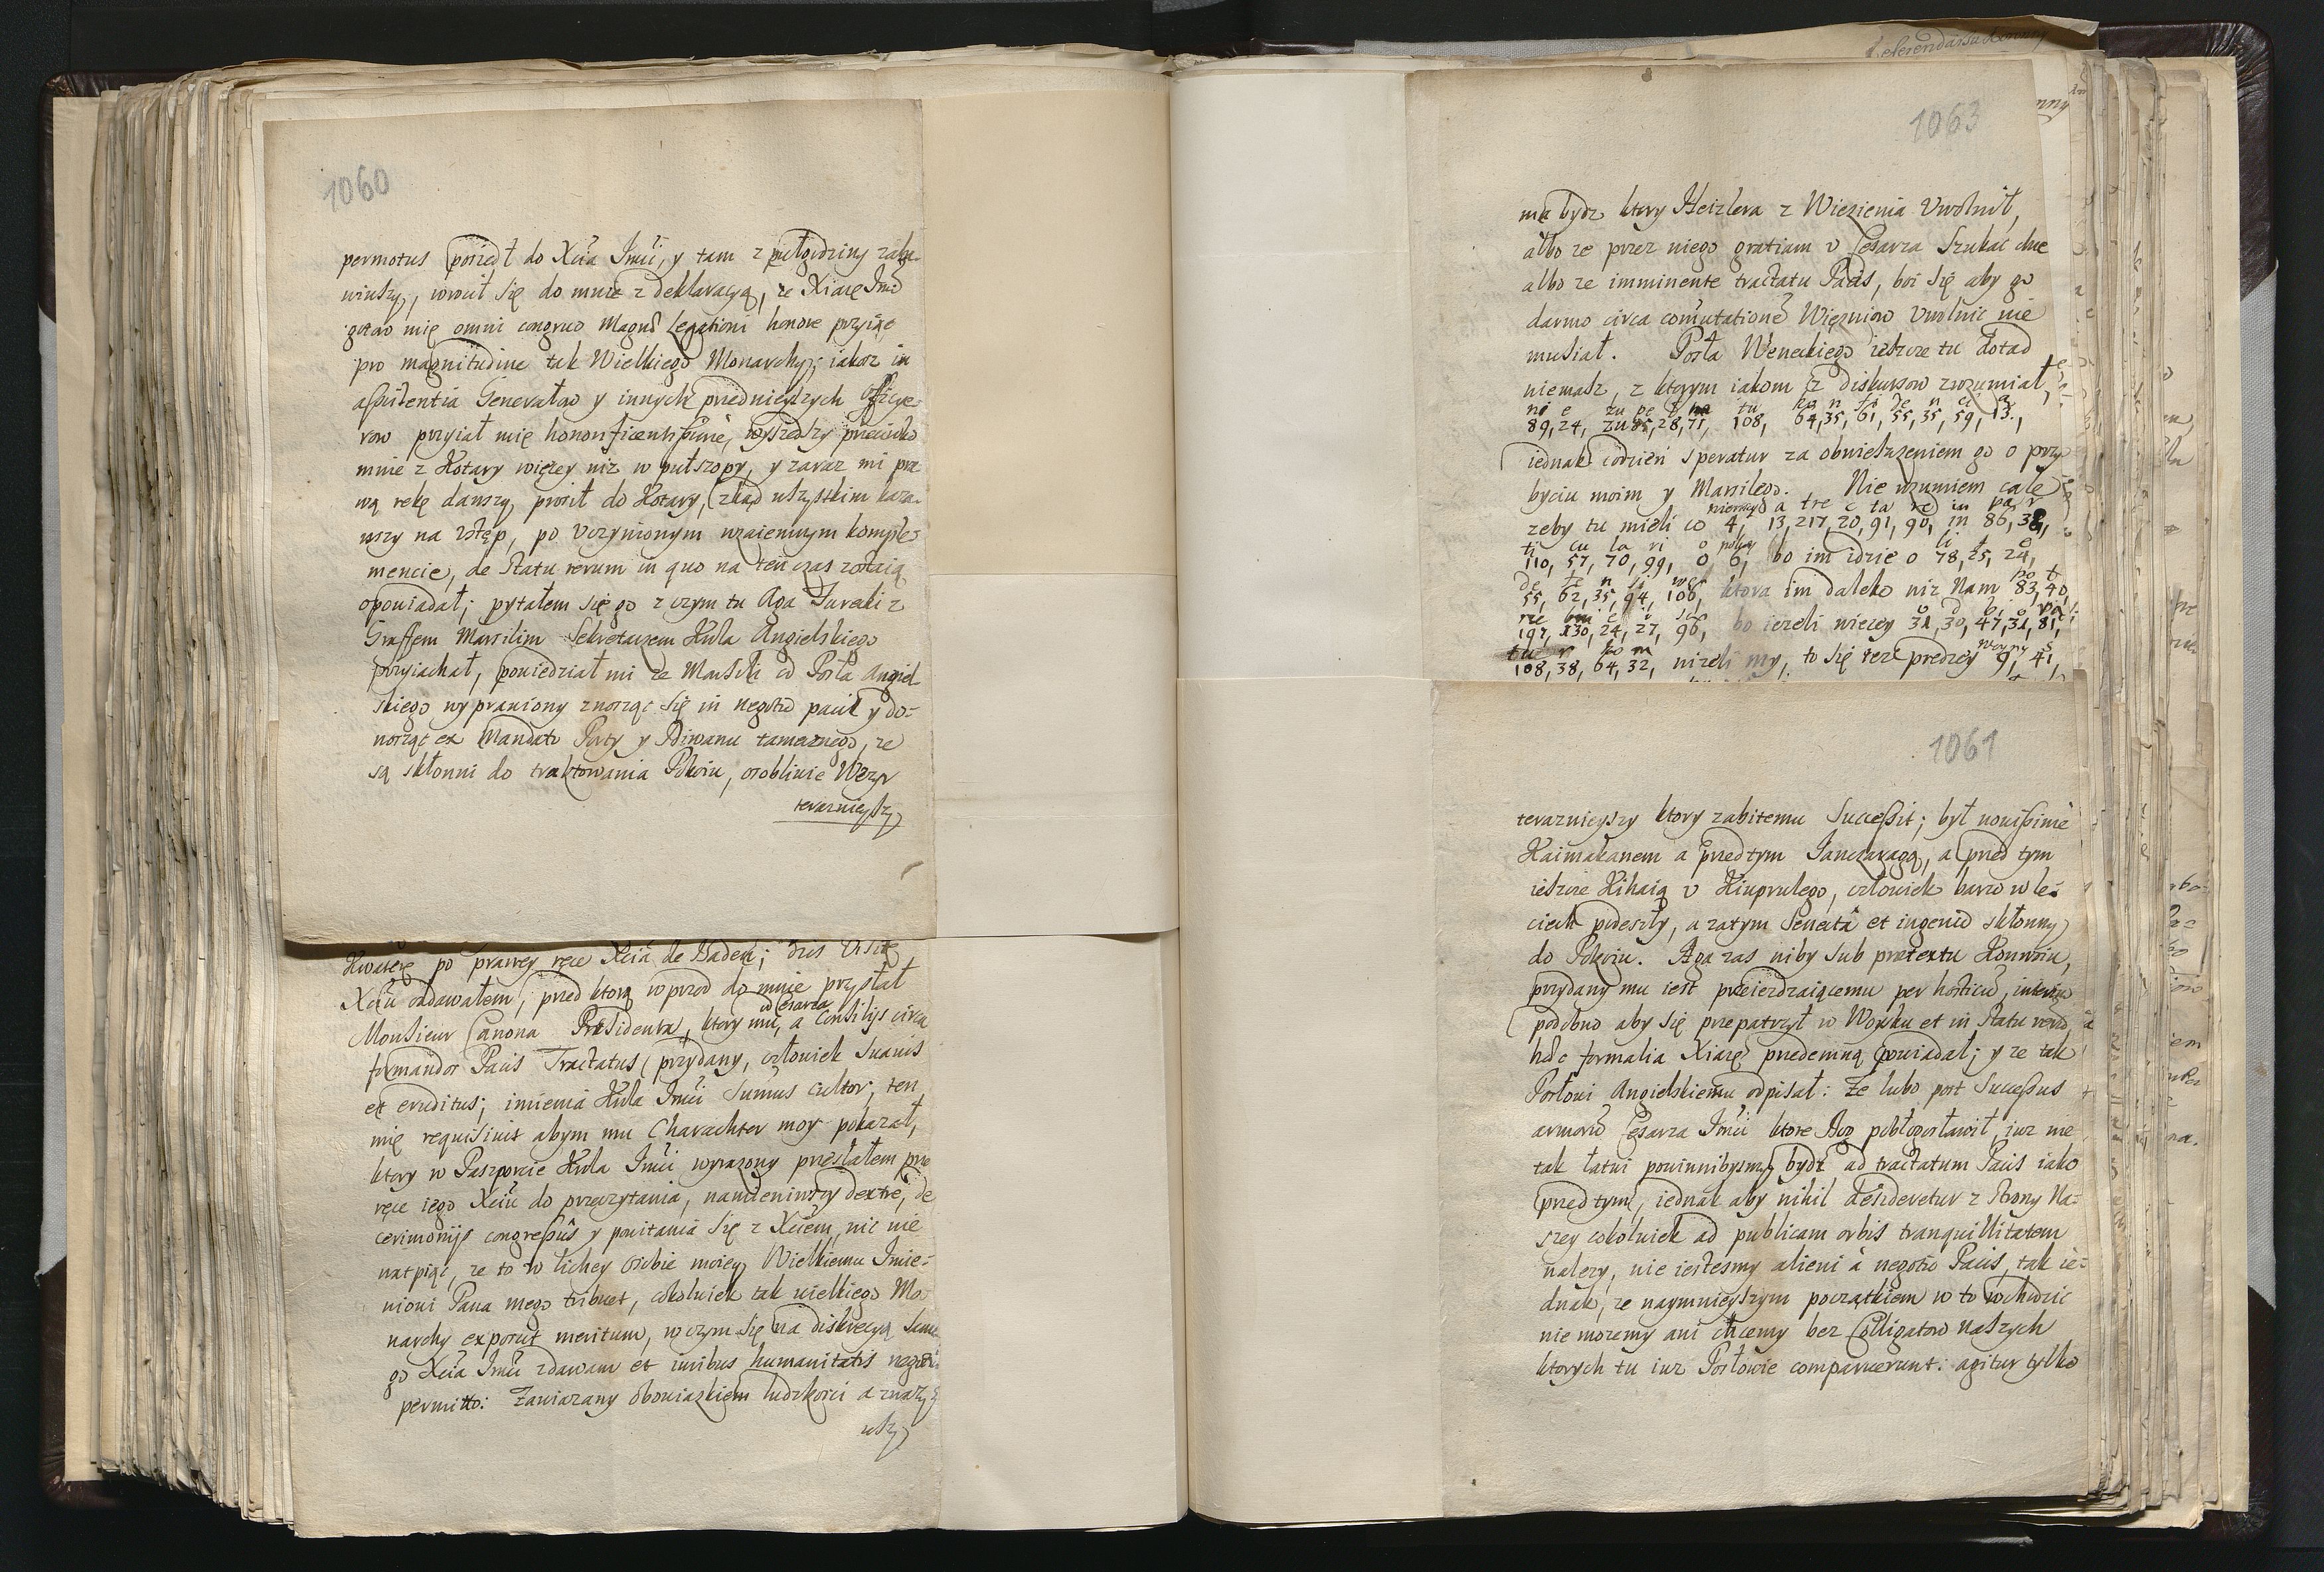 1060
permotus poszedł do Xcia Jmci, y tam z pułgodziny zaba-
wiwszy, wrócił się do mnie z deklaracyą, że Xiąze Jmc
gotow mię omni congruo Magnae Legationi honore przyiąc
pro magnitudine tak Wielkiego Monarchy; iakoz in
assistentia Generałow y innych przednieyszych Officye-
row przyiał mię honorificentissime, wyszedszy przeciwko
mnie z Kotary więcey niz w puł szopy, y zaraz mi pra-
wą rękę dawszy, prosił do Kotary, zkąd wszystkim kaza-
wszy na Ustęp, po uczynionym wzaiemnym komple-
mencie, de Statu rerum in quo na ten czas zostaią
opowiadał; pytałem się go z czym tu Aga Turecki z
Graffem Marsilim Sekretarzem Kr̃la Angielskiego
przyiachał, powiedział mi że Marsili od Posła Angiel-
skiego wyprawiony znosząc się in negotio pacis y do-
nosząc ex Mandato Porty y Diwanu tamecznego, ze
są skłonni do traktowania Pokoiu, osobliwie Wezyr
teraznieyszy
Kwaterę po prawey ręce Xcia de Baden; dzis Visitę
Xciu oddawałem, przed ktorą wprzod do mnie przysłał
od Cesarza
Monsieur Canona Præsidenta, ktory mu, a Consilijs circa
formandos Pacis Tractatus przydany, człowiek suavis
et eruditus; imienia Kr̃la Jmci sumus cultor; ten
mię requisiuit abym mu Charachter moy pokazał,
ktory w Paszporcie Kr̃la Jmci wyrazony przesłałem prze
ręce iego Xciu do przeczytania, namieniwszy dextre, de
cerimonijs congressus y powitania się z Xciem, nic nie
wątpiąc, ze to w lichey osobie moiey Wielkiemu Imie-
niowi Pana mego tribuet, cokolwiek tak wielkiego Mo-
narchy exposcit meritum, w czym się na diskrecyą same
go Xcia Jmci zdawam et iuribus humanitatis negotium
permitto: Zawiązany obowiązkiem ludzkości
wszy
1063
ma bydz ktory Heizlera z Więzienia Uwolnił,
albo ze przez niego gratiam u Cesarza Szukać chce
albo ze imminente tractatu Pacis, boi się aby go
darmo circa comutationem Więzniow Uwolnic nie
musiał. Posła Weneckiego ieszcze tu dotad
niemasz, z ktorym iakom iz diskursow zrozumiał,
ni e zu pe ł na tu ko n fi de n ci a
89, 24, zu 85, 28, 71, 108, 64, 35, 61, 55, 35, 59, 13,
iednak codzien speratur za obwieszczeniem go o przy-
byciu moim y Marsilego. Nie rozumiem cale
pierwey a tre c ta re in pa r
zeby tu mieli co 4, 13, 217, 20, 91, 90, in 86, 38,
ti cu la ri o pokoy li t e
110, 57, 70, 99, 0 6, bo im idzie o 78, 25, 24,
de fe n si wę po t
55, 62, 35, 94, 106, ktora im daleko niz Nam 83, 40,
rze bni e i sza
197, 130, 24, 27, 96, bo iezeli wiecey 31, 30, 47, 31, 81,
tu r ko m Woyny s
108, 38, 64, 32, nizeli my, to się tez prędzey 9, 41,
1061
teraznieyszy ktory zabitemu Successit; był novissime
Kaimakanem a przedtym Janczaragą, a przed tym
ieszcze Kihaią u Kiuprulego, człowiek barzo w le-
ciech podeszły, a zatym Senectâ et ingenio skłonny
do Pokoiu. Aga zas niby sub prætextu Konwoiu,
przydany mu iest przeiezdzaiącemu per hosticu, interim
podobno aby się przepatrzył w Woysku et in Statu rerũ,
hæc formalia Xiąze przedemną powiadał; y ze tak
Posłowi Angielskiemu odpisał: Ze lubo post Successus
armorũ Cesarza Jmci ktore Bog pobłogosławił, iuz nie
tak łatwi powinnibysmy bydz ad tractatum Pacis iako
przedtym, iednak aby nihil desideretur z Strony Na-
szey cokolwiek ad publicam orbis tranquillitatem
nalezy, nie iestesmy alieni à negotio Pacis, tak ie-
dnak, ze naymnieyszym początkiem w to wchodzic
nie mozemy ani chcemy bez Colligatow naszych
ktorych tu iuz Posłowie comparuerunt: agitur tylko